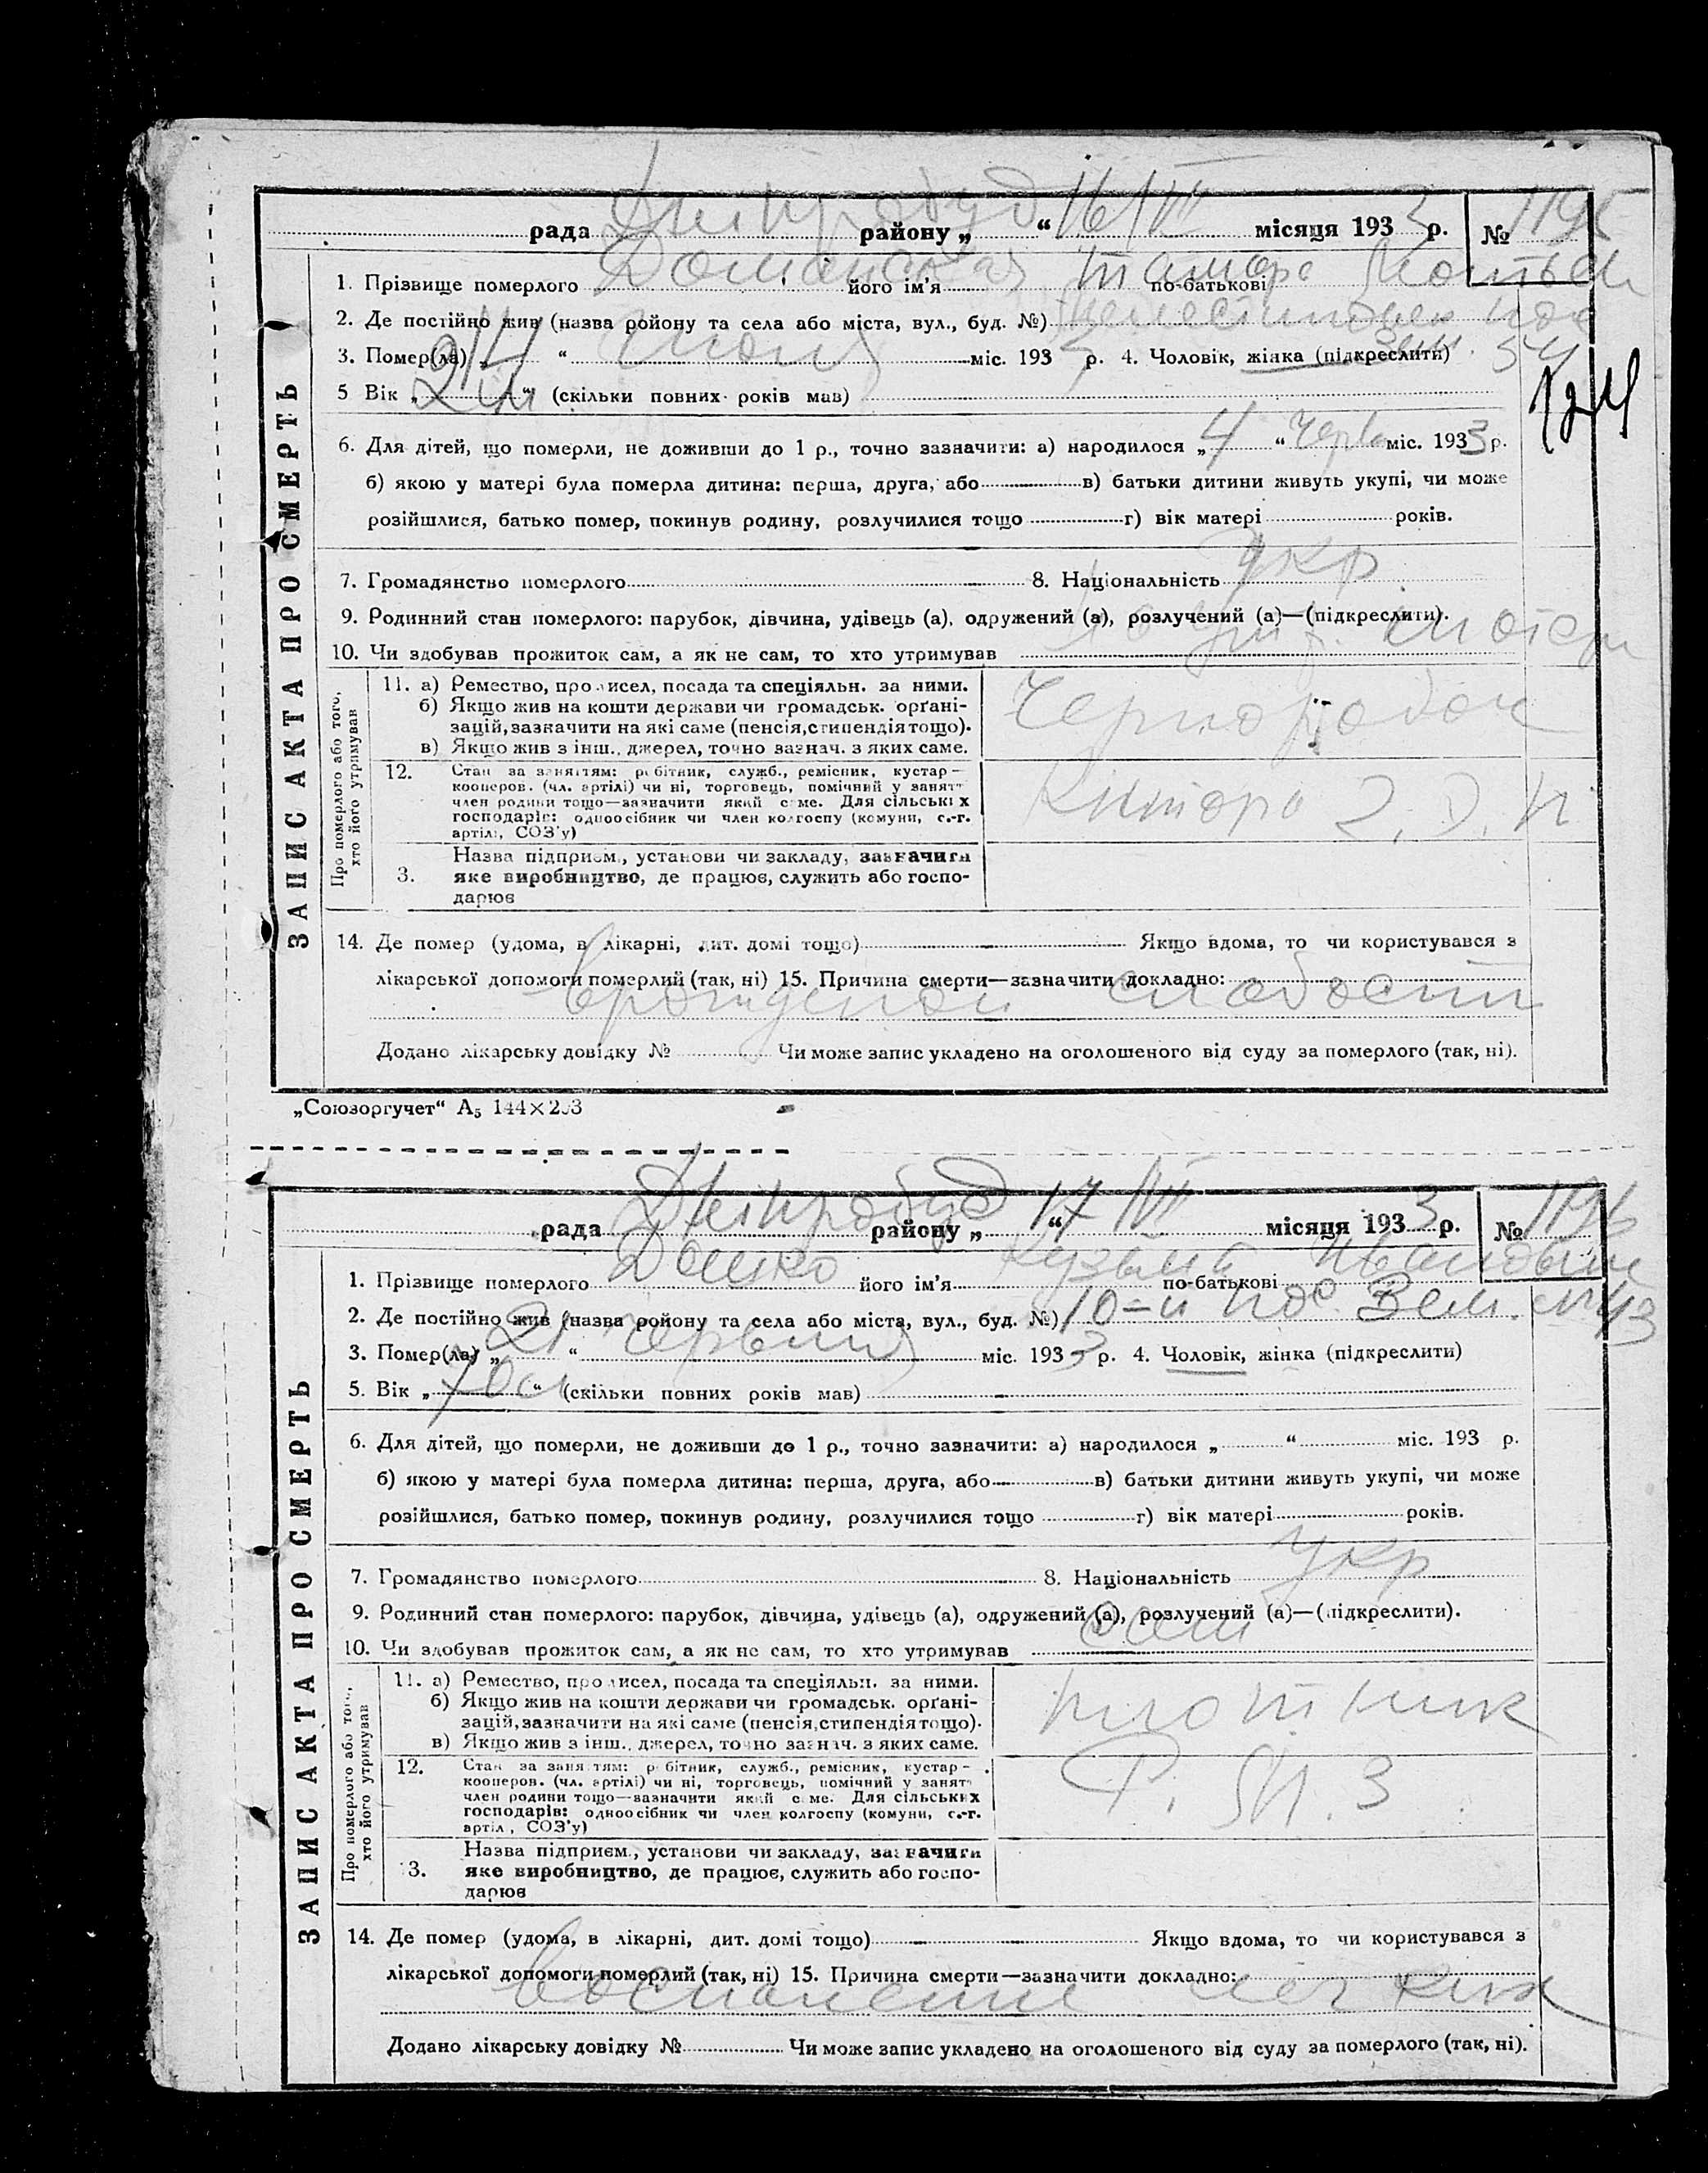 Дніпробуд 16/VII
рада районy „ “ місяця 1933 р. № 1195
1. Прізвище померлого Доманская його ім'я Тамара по-батькові
2. Де постійно жив (назва ройону та села або міста, вул., буд. №)
3. Помер(ла) „ “ міс. 193 р. 4. Чоловік, жінка (підкреслити)
5 Вік „ “ (скільки повних років мав)
124
6. Для дітей, що померли, не доживши до 1 р., точно зазначити: а) народилося „4“ Черв міс. 1933 р.
б) якою у матері була померла дитина: перша, друга, або в) батьки дитини живуть укупі, чи може
розійшлися, батько помер, покинув родину, розлучилися тощо г) вік матері років.
7. Громадянство померлого 8. Національність Укр
9. Родинний стан померлого: парубок, дівчина, удівець (а), одружений (а), розлучений (а)—(підкреслити).
10. Чи здобував прожиток сам, а як не сам, то хто утримував
ЗАПИС АКТА ПРО СМЕРТЬ
Про померлого або того, хто його утримував
11. а) Ремество, промисел, посада та спеціяльн. за ними.
б) Якщо жив на кошти держави чи громадськ. орґані-
зацій, зазначити на які саме (пенсія, стипендія тощо).
в) Якщо жив з інш. джерел, точно зазнач. з яких саме.
Чернороб
12. Стан за заняттям: робітник, служб., ремісник, кустар—
кооперов. (чл. артілі) чи ні, торговець, помічний у занятт
член родини тощо—зазначити який саме. Для сільських
господарів: одноосібник чи член колгоспу (комуни, с.-г.
артілі, СОЗ'у)
3. Назва підприєм., установи чи закладу, зазначити
яке виробництво, де працює, служить або госпо-
дарює
14. Де помер (удома, в лікарні, дит. домі тощо) Якщо вдома, то чи користувався з
лікарської допомоги померлий (так, ні) 15. Причина смерти—зазначити докладно:
врожденой слабости
Додано лікарську довідку № Чи може запис укладено на оголошеного від суду за померлого (так, ні).
„Союзоргучет“ А5 144×203
Дніпробуд 17/VII
рада районy „ “ місяця 1933 р. № 1196
1. Прізвище померлого Дошко його ім'я Кузьма по-батькові Иванович
2. Де постійно жив (назва ройону та села або міста, вул., буд. №) 10-й пос Зем. №43
3. Помер(ла) „21“ червня міс. 1933 р. 4. Чоловік, жінка (підкреслити)
5. Вік „ “ (скільки повних років мав)
6. Для дітей, що померли, не доживши до 1 р., точно зазначити: а) народилося „ “ міс. 193 р.
б) якою у матері була померла дитина: перша, друга, або в) батьки дитини живуть укупі, чи може
розійшлися, батько помер, покинув родину, розлучилися тощо г) вік матері років.
7. Громадянство померлого 8. Національність Укр
9. Родинний стан померлого: парубок, дівчина, удівець (а), одружений (а), розлучений (а)—(підкреслити).
10. Чи здобував прожиток сам, а як не сам, то хто утримував сам
ЗАПИС АКТА ПРО СМЕРТЬ
Про померлого або того, хто його утримував
11. а) Ремество, промисел, посада та спеціяльн. за ними.
б) Якщо жив на кошти держави чи громадськ. орґані-
зацій, зазначити на які саме (пенсія, стипендія тощо).
в) Якщо жив з інш. джерел, точно зазнач. з яких саме.
плотник
12. Стан за заняттям: робітник, служб., ремісник, кустар—
кооперов. (чл. артілі) чи ні, торговець, помічний у занятт
член родини тощо—зазначити який саме. Для сільських
господарів: одноосібник чи член колгоспу (комуни, с.-г.
артіл, СОЗ'у)
13. Назва підприєм., установи чи закладу, зазначити
яке виробництво, де працює, служить або госпо-
дарює
14. Де помер (удома, в лікарні, дит. домі тощо) Якщо вдома, то чи користувався з
лікарської допомоги померлий (так, ні) 15. Причина смерти—зазначити докладно:
Воспаление легких
Додано лікарську довідку № Чи може запис укладено на оголошеного від суду за померлого (так, ні).